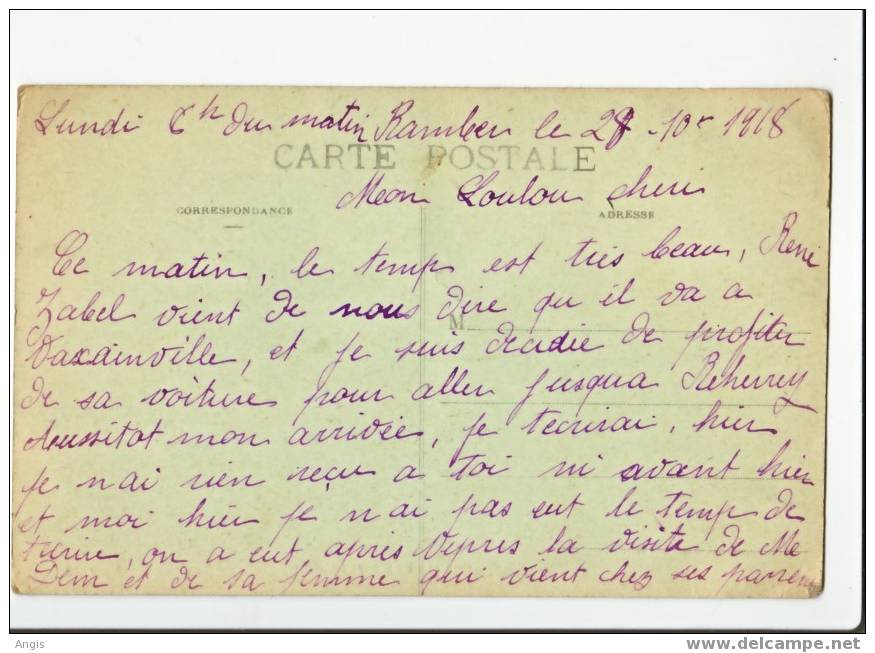 Lundi 6h du matin Ramber le 28 - 10r 1918
CARTE POSTALE
Mon Loulou cheri
CORRESPONDANCE
ADRESSE
Ce matin, le temp est très beau, René
Zabel vient de nous dire qu il va a
M
Vaxainville, et je suis décidie de profiter
de sa voiture pour aller jusqua Reherrey
Aussitot mon arrivée, je tecrirai, hier
je n ai rien reçu a toi ni avant hier
et moi hier je n ai pas eut le temp de
tecrire, on a eut après Vepres la visite de Me
Dem et de sa femme qui vient chez ses parren
Angis
www.delcampe.net